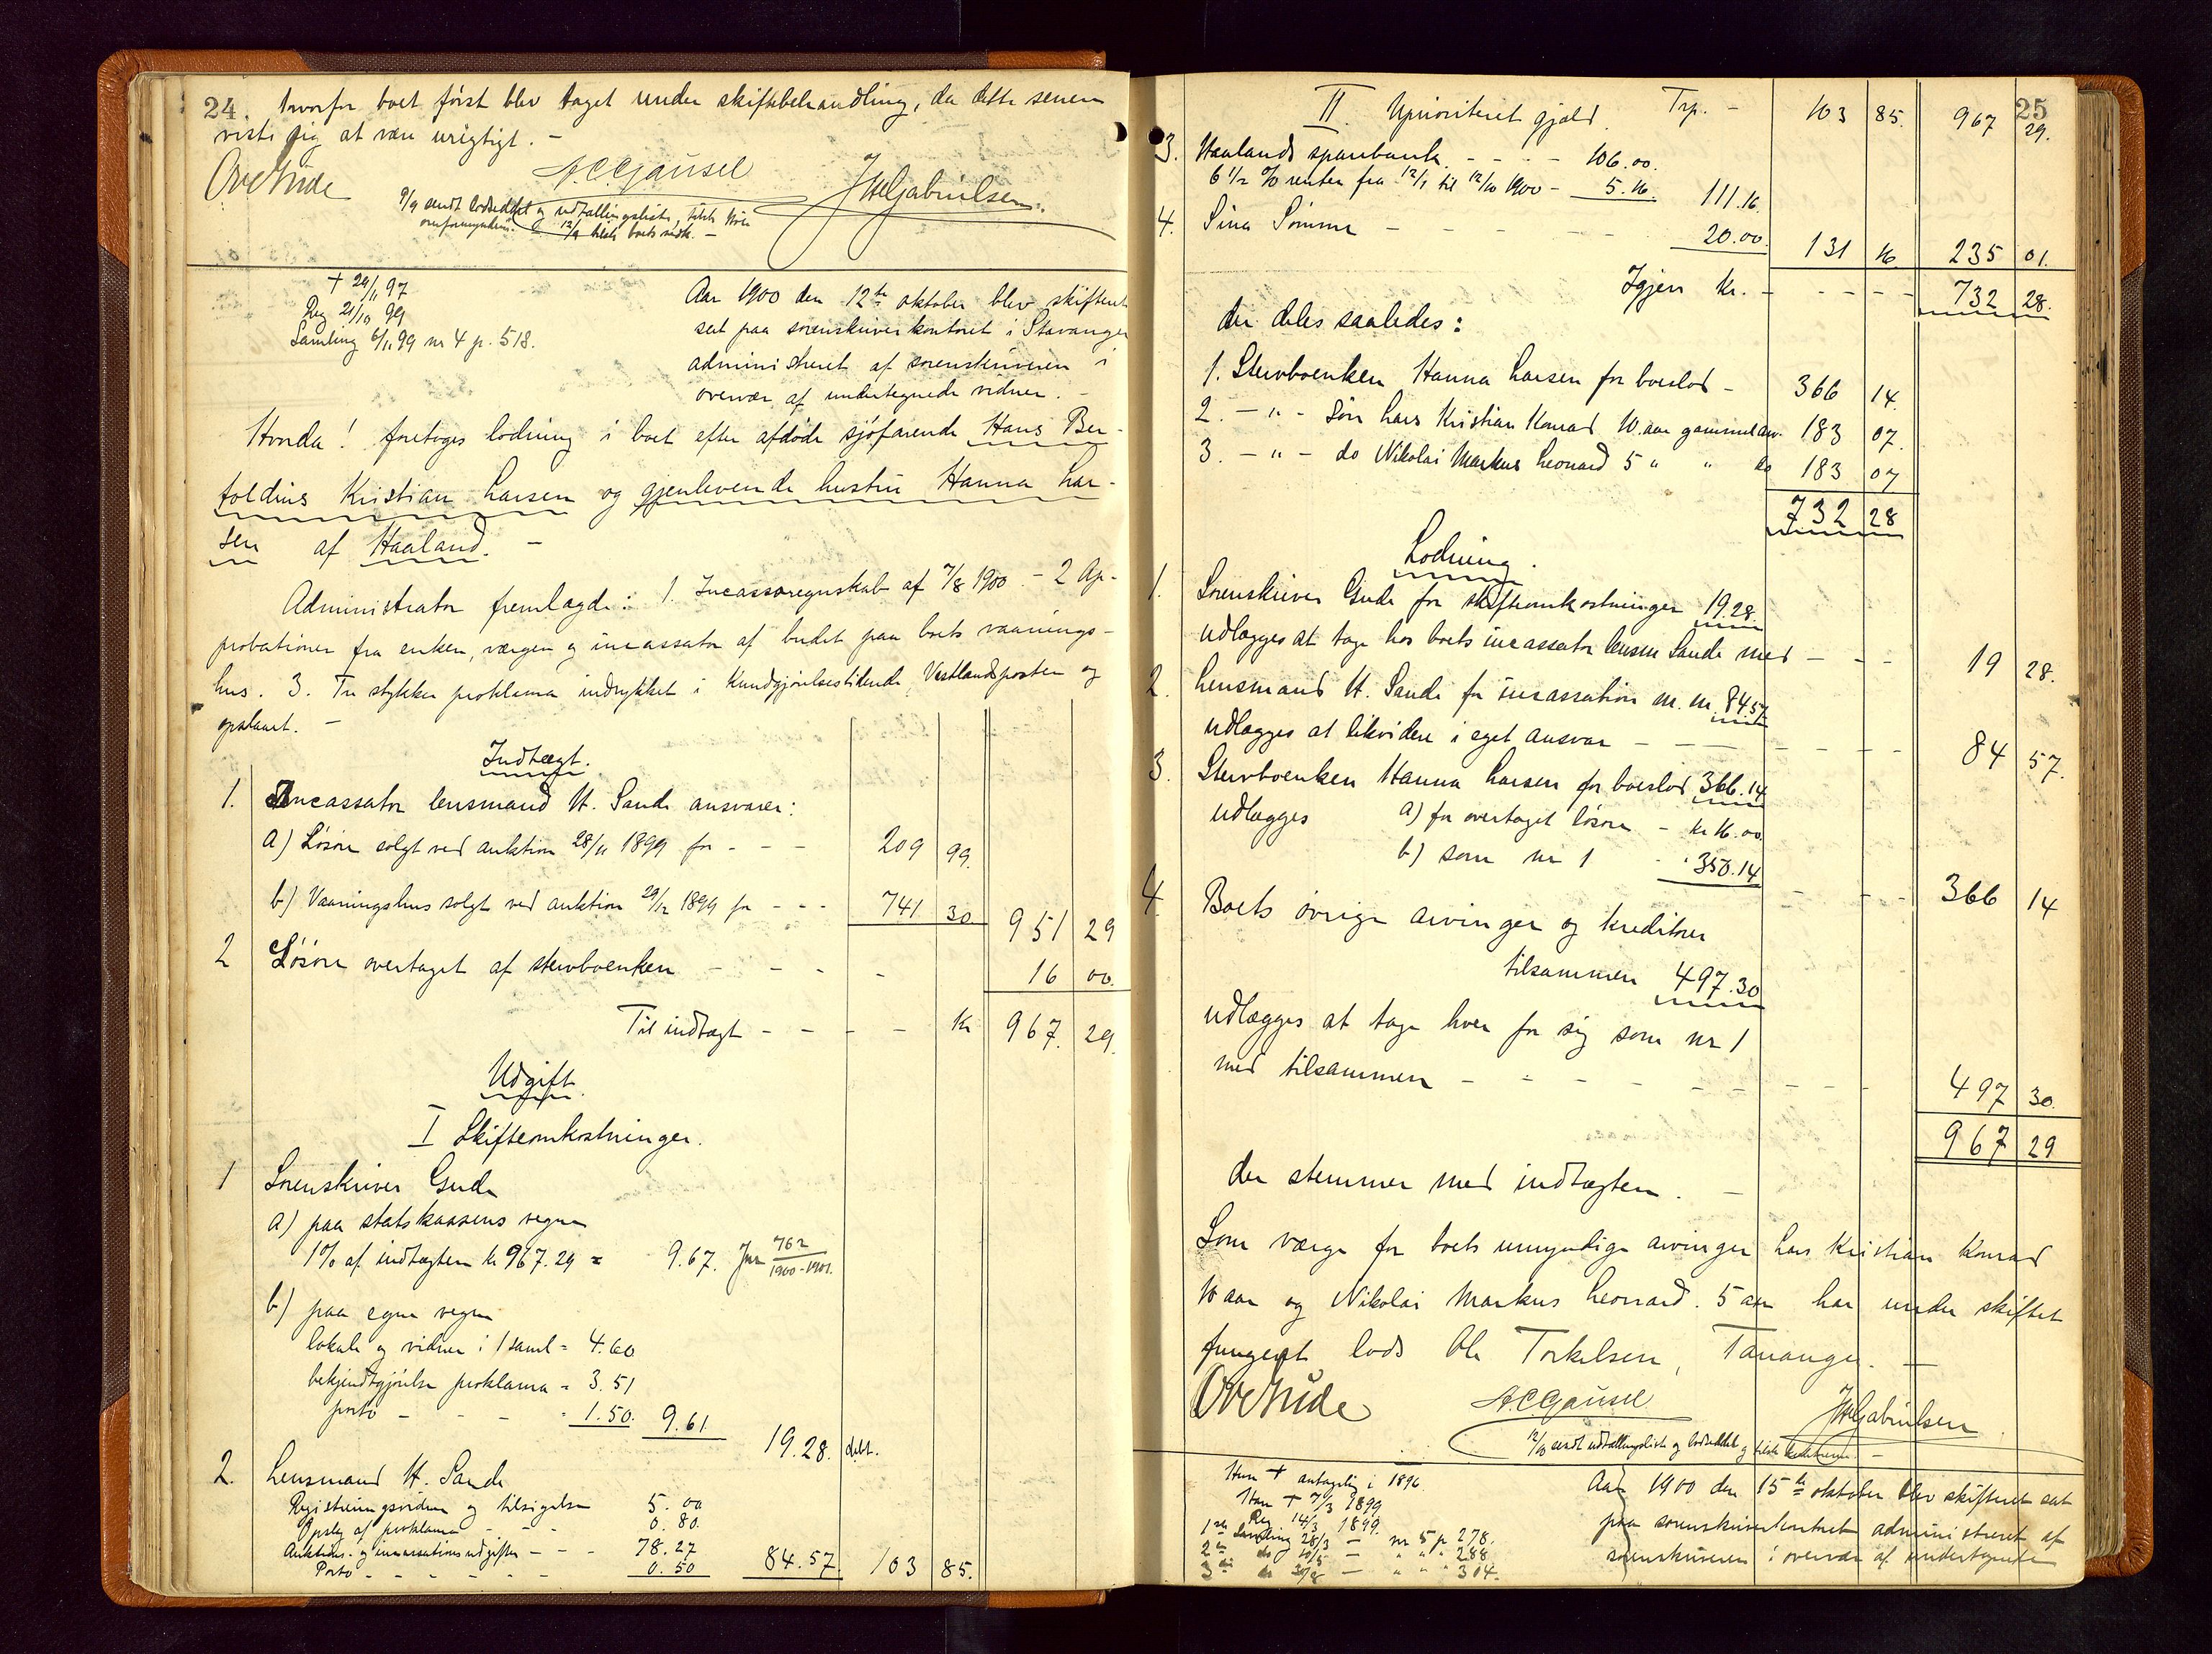 24. hvorfor boet først blev taget under skiftebehandling, da dette senere
viste sig at være urigtigt. –
Ove Gude A.C. Gausel J W Gabrielsen.
9/9 sendt lodseddel og udtællingsliste, tilst.
overformynderi. og 12/9 tilst. boets vedk. –
+ 29/11 97
Reg 21/10 99
Samling 6/11 99 nr 4 p. 518.
Aar 1900 den 12te oktober blev skifteret
sat paa sorenskriverkontoret i Stavanger
administreret af sorenskriveren i
overvær af undertegnede vidner. –
Hvorda! foretoges lodning i boet efter afdøde sjøfarende Hans Ber-
toldius Kristian Larsen og gjenlevende hustru Hanna Lar-
sen af Haaland. –
Administrator fremlagde: 1. Incassoregnskab af 7/8 1900. – 2 Ap-
probationer fra enken, værgen og incassator af budet paa boets vaanings-
hus. 3. Tre stykker proklama indrykket i Kundgjørelsestidende, Vestlandsposten og
opslaaet. –
Indtægt.
1. Incassator lensmand H. Sande ansvarer:
a) Løsøre solgt ved auktion 28/11 1899 for - - - 209 99.
b) Vaaningshus solgt ved auktion 29/12 1899 for - - - 741 30 951 29
2 Løsøre overtaget af stervboenken - - - - 16 00.
Til indtægt - - - - Kr 967. 29.
Udgift.
I Skifteomkostninger.
1 Sorenskriver Gude
a) paa statskassens vegne
1% af indtægten kr 967.29 = 9.67. Jnr 762/1900-1901.
b) paa egne vegne
lokale og vidner i 1 saml = 4.60
bekjendtgjørelse proklama = 3.51
porto - - - - 1.50. 9.61
19.28. debt.
2. Lensmand H. Sande
Registreringsvidner og tilsigelse 5.00
Opslag af proklama - - - 0.80.
Auktions- og incassationsudgifter - - - 78.27
Porto - - - - - - 0.50 84.57. 103 85.
25
II. Uprioriteret gjæld. Trp. - 103 85. 967 29.
3. Haalands sparebank. - - - - 106.00.
6 1/2 % renter fra 12/1 til 12/10 1900 - 5.16. 111.16.
4. Sina Sømme - - - - - 20.00. 131 16 235 01.
Igjen kr. - - - - - 732 28.
der deles saaledes:
1. Stervboenken Hanna Larsen for boeslod - 366 14.
2. - " - Søn Lars Kristian Konrad 10 aar gammel arv. 183 07.
3. - " - do Nikolai Markus Leonard 5 " " do 183 07
732 28
Lodning.
1. Sorenskriver Gude for skifteomkostninger 19.28.
udlægges at tage hos boets incassator lensm Sande med - - - 19 28.
2. Lensmand H. Sande for incassation m. m. 84.57
udlægges at likvidere i eget ansvar - - - - - - - 84 57.
3. Stervboenken Hanna Larsen for boeslod 366.14
udlægges a) for overtaget løsøre - kr 16.00.
b) som nr 1 - " 350.14 - - - 366 14
4. Boets øvrige arvinger og kreditorer
tilsammen 497.30
udlægges at tage hver for sig som nr 1
med tilsammen - - - - - - - - 497 30.
967 29
der stemmer med indtægten. –
Som værge for boets umyndige arvinger Lars Kristian Konrad
10 aar og Nikolai Markus Leonard. 5 aar har under skiftet
fungeret lods Ole Torkelsen, Tananger. –
Ove Gude A.C. Gausel J W Gabrielsen
12/10 sendt udtællingsliste og lodseddel og tilst.
Hun + antagelig i 1896.
Han + 7/3 1899
Reg 14/3 1899.
1ste Samling 28/3 – nr 5 p 278.
2den do 10/5 – " " " 288
3die do 30/8 – " " " 304.
Aar 1900 den 15de oktober blev skifteret sat
paa sorenskriverkontoret administreret af
sorenskriveren i overvær af undertegnede